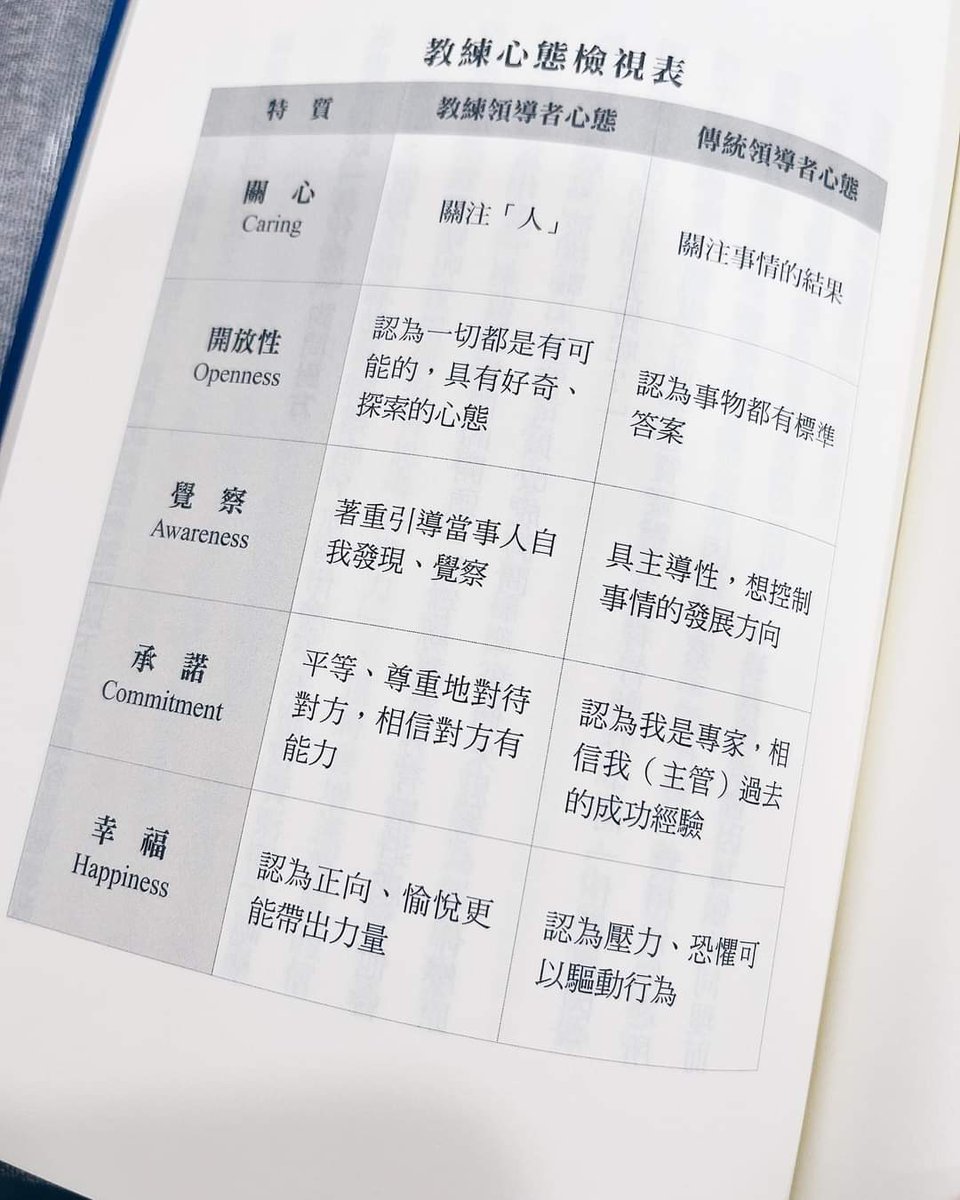 教練心態檢視表
特 質
教練領導者心態
傳統領導者心態
關 心
Caring
關注「人」
關注事情的結果
開放性
Openness
認為一切都是有可
能的，具有好奇、
探索的心態
認為事物都有標準
答案
覺 察
Awareness
著重引導當事人自
我發現、覺察
具主導性，想控制
事情的發展方向
承 諾
Commitment
平等、尊重地對待
對方，相信對方有
能力
認為我是專家，相
信我（主管）過去
的成功經驗
幸 福
Happiness
認為正向、愉悅更
能帶出力量
認為壓力、恐懼可
以驅動行為